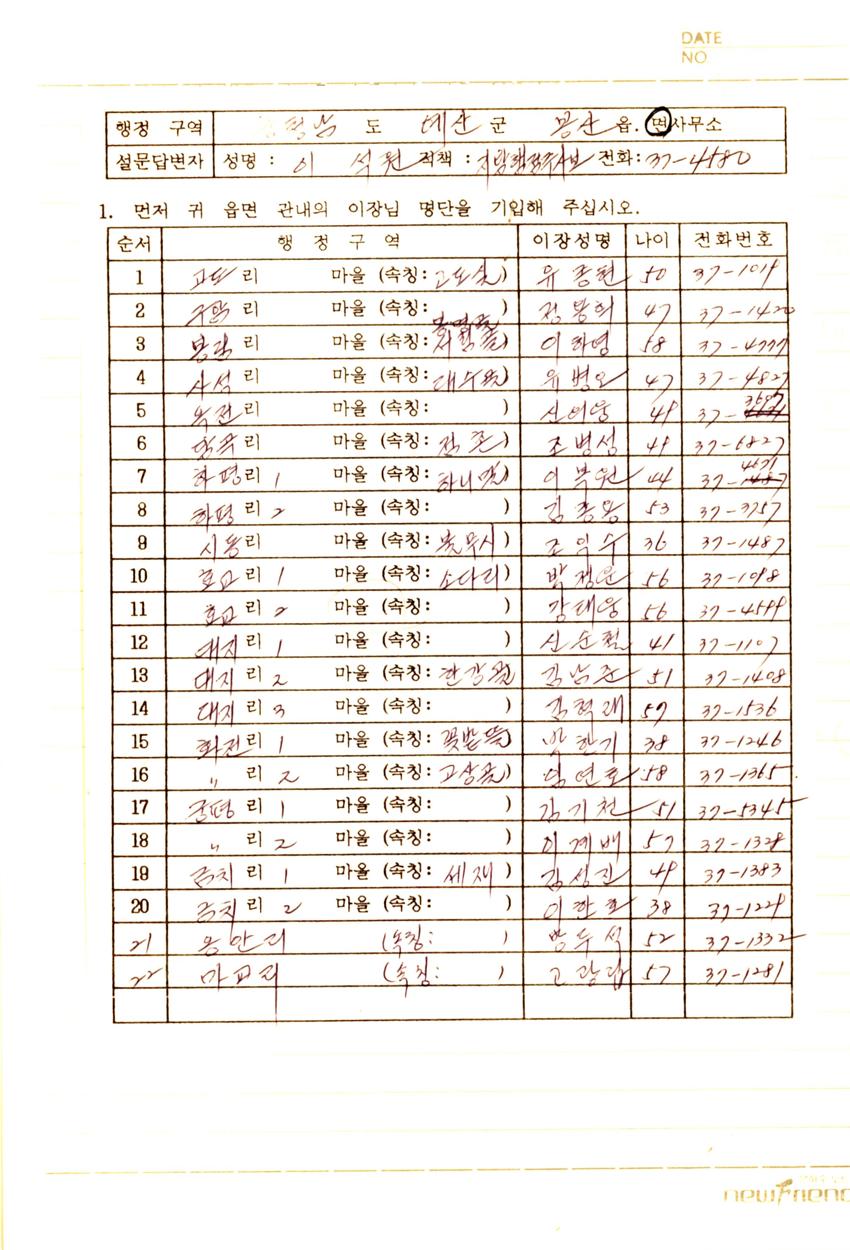 DATE
NO
행정 구역 충청남 도 예산 군 봉산 읍. 면사무소
설문답변자 성명 : 이 석원 직책 : 전화: 37-4580
1. 먼저 귀 읍면 관내의 이장님 명단을 기입해 주십시오.
순서 행 정 구 역 이장성명 나이 전화번호
1 고도 리 마을 (속칭: ) 유종현 50 37-1019
2 구암 리 마을 (속칭: ) 정봉희 47 37-1420
3 봉림 리 마을 (속칭: ) 이하영 58 37-4777
4 사석 리 마을 (속칭: ) 유병오 47 37-4827
5 옥전 리 마을 (속칭: ) 49 37-3507
6 당곡 리 마을 (속칭: ) 조병성 49 37-6827
7 하평 리 1 마을 (속칭: ) 이복원 44 37-4671
8 하평 리 2 마을 (속칭: ) 김종용 53 37-3757
9 시동 리 마을 (속칭: 붓무시) 조익수 36 37-1487
10 효교 리 1 마을 (속칭: 소다리) 56 37-1098
11 효교 리 2 마을 (속칭: ) 강태웅 56 37-4599
12 대지 리 1 마을 (속칭: ) 신순철 41 37-1107
13 대지 리 2 마을 (속칭: ) 김남준 51 37-1408
14 대지 리 3 마을 (속칭: ) 김혁래 57 37-1536
15 화전 리 1 마을 (속칭: 꽃밭뜸) 박한기 38 37-1246
16 〃 리 2 마을 (속칭: ) 임연호 58 37-1365
17 궁평 리 1 마을 (속칭: ) 김기천 51 37-5345
18 〃 리 2 마을 (속칭: ) 이계배 57 37-1328
19 금치 리 1 마을 (속칭: 세재 ) 김성진 49 37-1383
20 금치 리 2 마을 (속칭: ) 이한호 38 37-1229
21 봉안리 (속칭: ) 방두석 52 37-1332
22 마교리 (속칭: ) 고광답 57 37-1281
newFriend